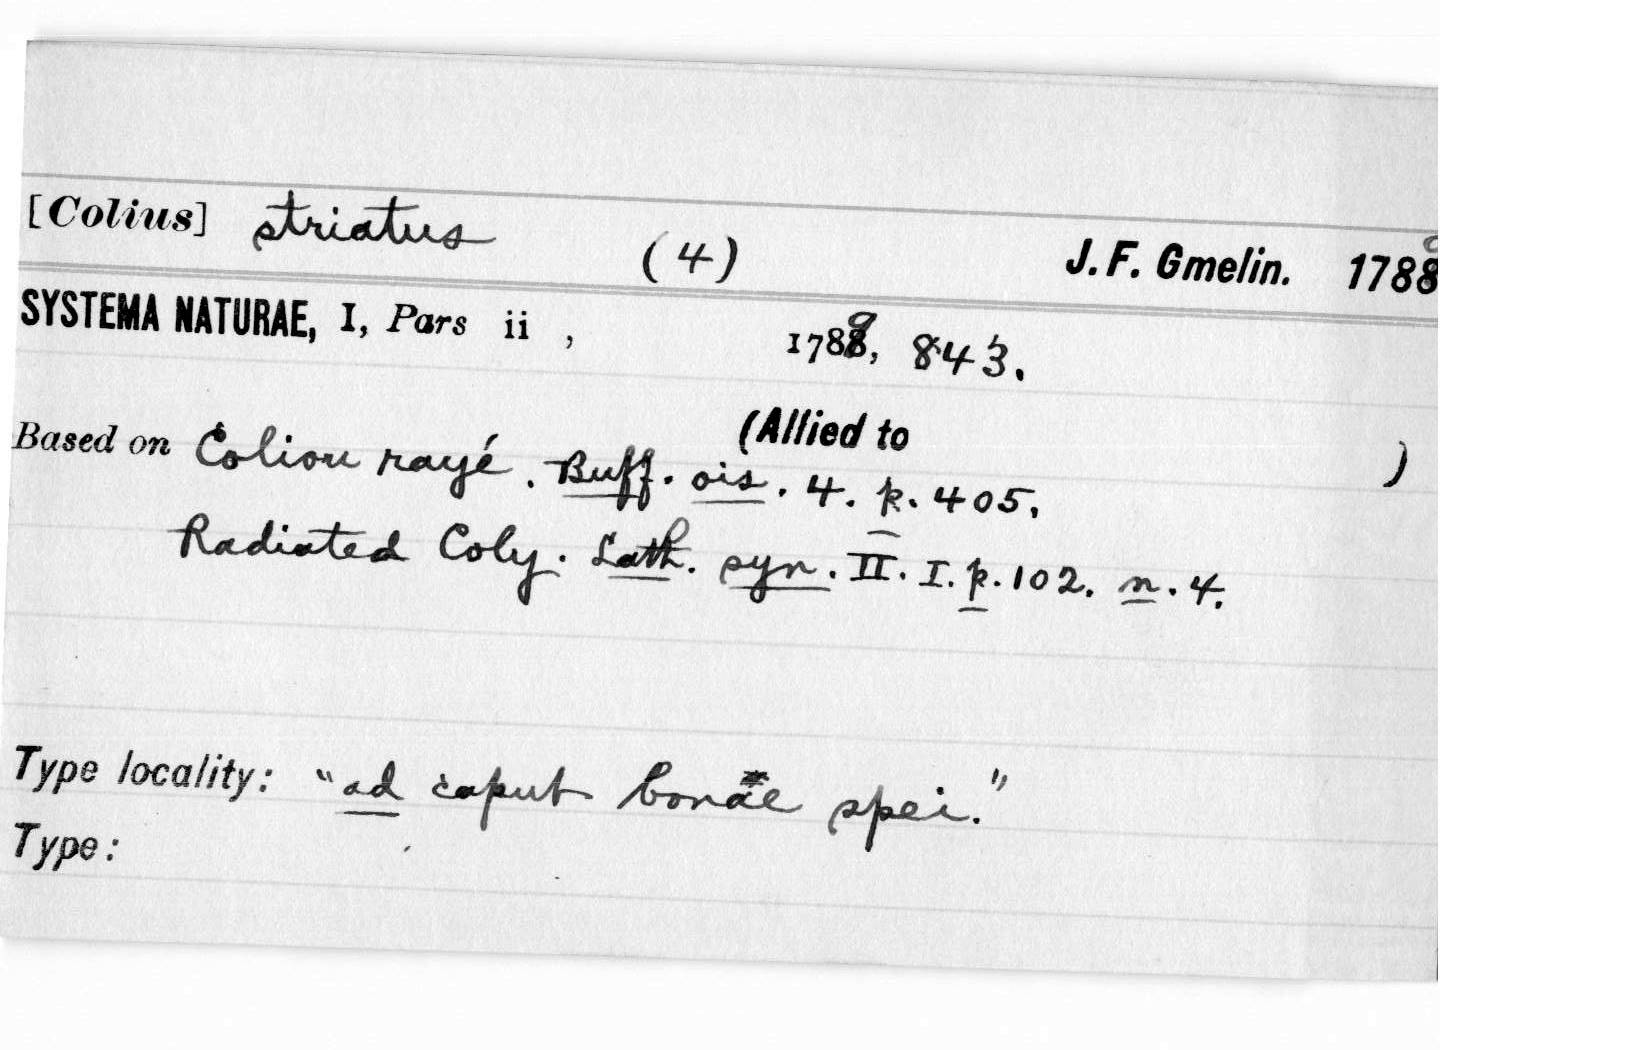 [Colius] striatus (4) J. F. Gmelin. 1789
SYSTEMA NATURAE, I, Pars ii , 1789, 843.
(Allied to )
Based on Coliou rayé. Buff. ois. 4. p. 405.
Radiated Coly. Lath. syn. II. I. p. 102. n. 4.
Type locality: "ad caput bonae spei."
Type: